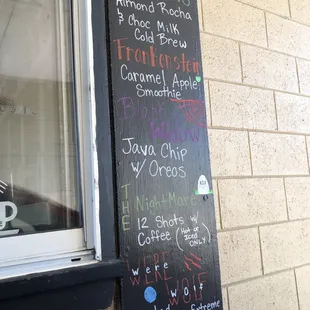 Almond Rocha
& Choc Milk
Cold Brew
Frankenstein
Caramel Apple
Smoothie
Black
Widow
Java Chip
w/ Oreos
THE
NightMare
12 Shots of
Coffee (Hot or Iced ONLY)
were
WOLF